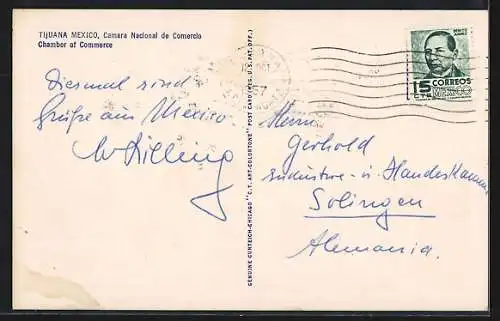 TIJUANA MEXICO, Camara Nacional de Comercio
Chamber of Commerce
Diesmal sind
Grüße aus Mexico
GENUINE CURTEICH-CHICAGO "C.T. ART-COLORTONE" POST CARD (REG. U.S. PAT. OFF.)
BENITO JUAREZ
15 CORREOS
CTS MEXICO
57
Herrn
Gerhold
Industrie- u Handelskammer
Solingen
Alemania.